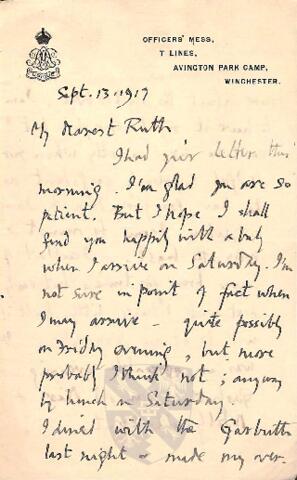 OFFICERS' MESS,
T LINES,
AVINGTON PARK CAMP,
WINCHESTER.
Sept. 13. 1917
My Dearest Ruth
I had your letter this
morning. I'm glad you are so
patient. But I hope I shall
find you happily with a baby
when I arrive on Saturday. I'm
not sure in point of fact when
I may arrive - quite possibly
on Friday evening, but more
probably I think not; anyway
by lunch on Saturday.
I dined with the Garbutts
last night & made my over-